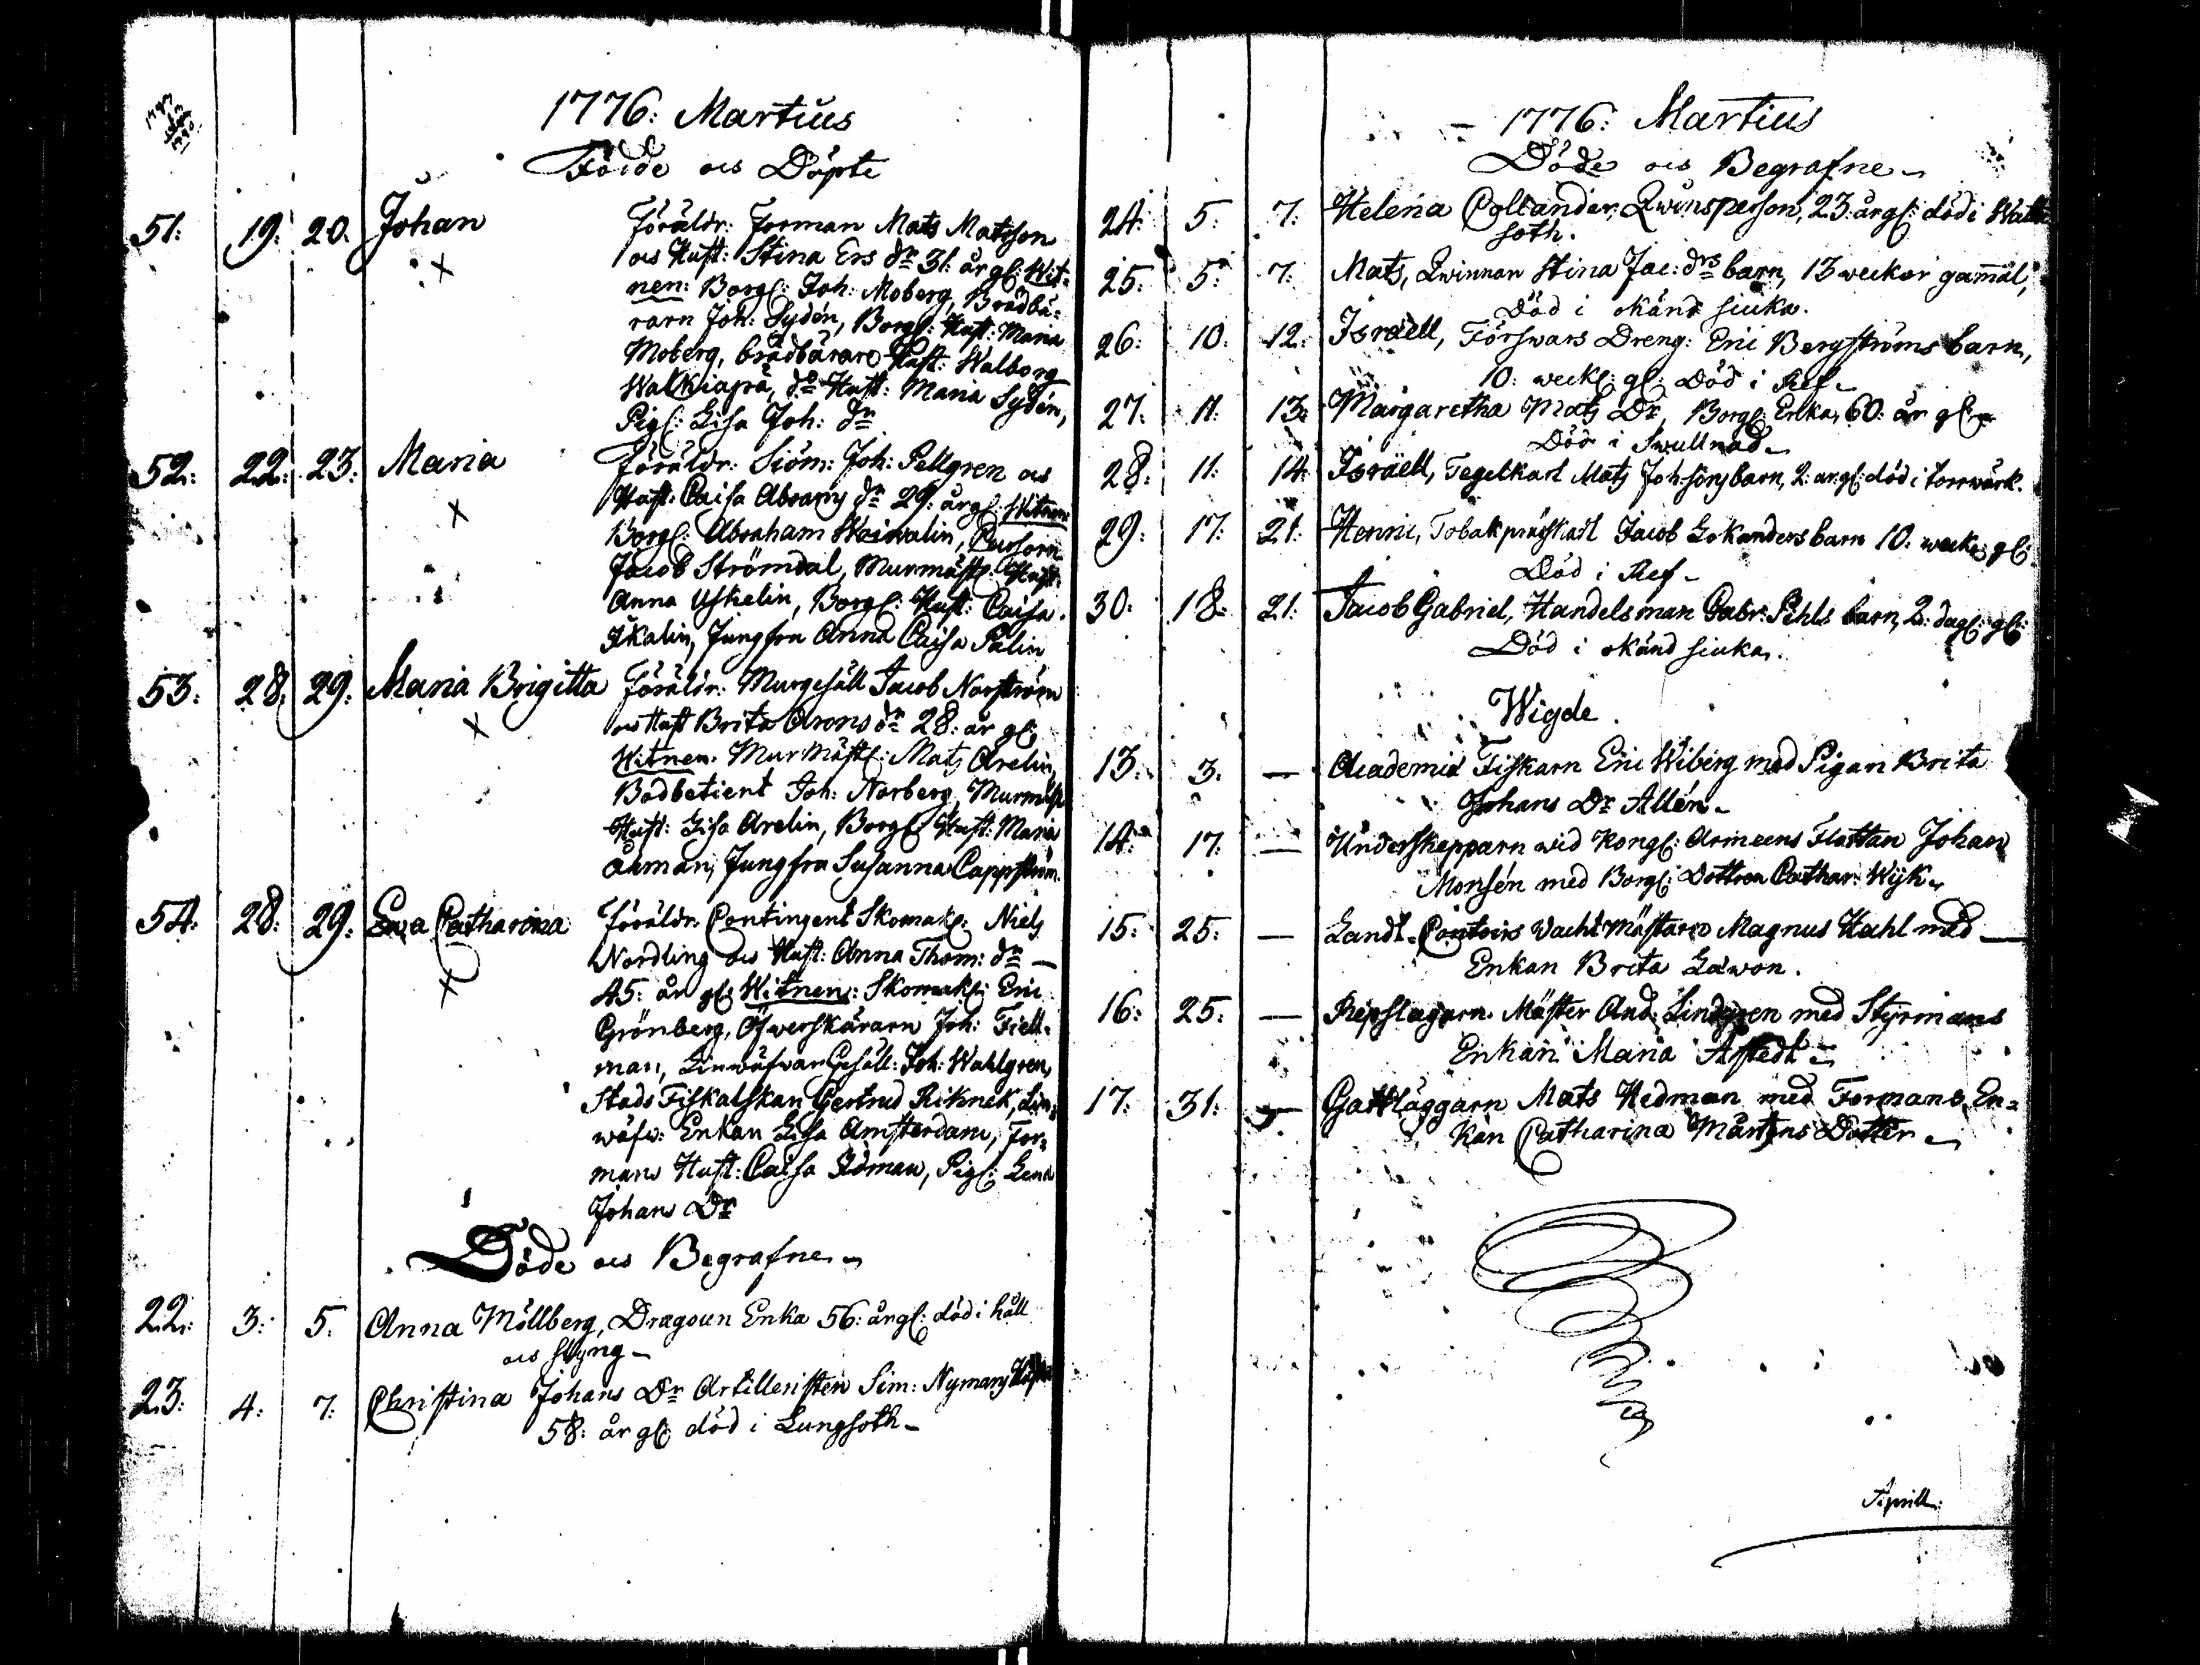 1776: Martius
Födde och Döpte
51: 19: 20. Johan
Föräldr: Forman Mats Matsson
och Hust: Stina Ers dr 31: år gl: Wit-
nen: Borgl: Joh: Moberg, Brödbä-
rarn Joh: Sydén, Borgl: Hust: Maria
Moberg, brödbärare Hust: Walborg
Walkiapä, do Hust: Maria Sydén,
Pigl: Lisa Joh: dr
52: 22: 23: Maria
Föräldr: Siöm: Joh: Pellgren och
Hust: Caisa Abrams dr 29: år gl: Witnen:
Borgl: Abraham Waiwalin,
Jacob Strömdal, Murmäst: Hust:
Anna Uskelin, Borgl: Hust: Caisa
Ikalin, Jungfru Anna Caisa Palin
53: 28: 29: Maria Brigitta
Föräldr: Murgesäll Jacob Norström
och Hust Brita Arons dr 28: år gl:
Witnen: Murmäst: Mats Arelin,
Bodbetient Joh: Norberg, Murmäst
Hust: Lisa Arelin, Borgl: Hust: Maria
Öhman, Jungfru Susanna Cappström
54: 28: 29: Ewa Catharina
Föräldr: Contingent Skomak: Niels
Nordling och Hust: Anna Thom: dr —
45: år gl: Witnen: Skomak: Eric
Grönberg, Öfwerskärarn Joh: Fiell-
man, Linwäfwar Gesäll: Joh: Wahlgren,
Stads Fiskalskan Gertrud Riknek, Lin-
wäfw: Enkan Lisa Amsterdam, For-
mans Hust: Caisa Idman, Pigl: Lena
Johans Dr
Döde och Begrafne
22: 3: 5. Anna Möllberg, Dragoun Enka 56: år gl: död i håll
och styng
23: 4: 7: Christina Johans Dr Artilleristen Sim: Nymans Hust
58: år gl: död i Lungsoth
1776: Martius
Döde och Begrafne
24: 5: 7: Helena Collander, Qwinsperson, 23: år gl: död i Watt-
soth.
25: 5: 7: Mats, Qwinnan Stina Jac: drs barn, 13 weckor gamal,
Död i okänd siuka.
26: 10: 12: Israell, Förswars Dreng: Eric Bergströms barn,
10: weck: gl: Död i Ref
27: 11: 13: Margaretha Mats Dr, Borgl: Enka, 60: år gl:
Död i Swullnad
28: 11: 14: Israell, Tegelkarl Mats Joh:sons barn, 2: år gl: död i torrwärk.
29: 17: 21: Henric, Jacob Lokanders barn 10. weck: gl:
Död i Ref
30: 18: 21: Jacob Gabriel, Handelsman Gabr: Pihls barn, 2: dag: gl:
Död i okänd siuka.
Wigde.
13: 3: — Academiæ Fiskarn Eric Wiberg med Pigan Brita
Johans Dr Allén
14: 17: — Underskepparn wid Kongl: Armeens Flottan Johan
Monsén med Borgl: Dottren Cathar: Wijk
15: 25: — Landt-Contoirs Wacht Mästaren Magnus Hahl med —
Enkan Brita Lawon.
16: 25: — Repslagarn. Mäster And: Lindgren med Styrmans
Enkan Maria
17: 31: — Gattläggarn Mats Hedman med Formans En-
kan Catharina Mårtens Dotter
Aprill: